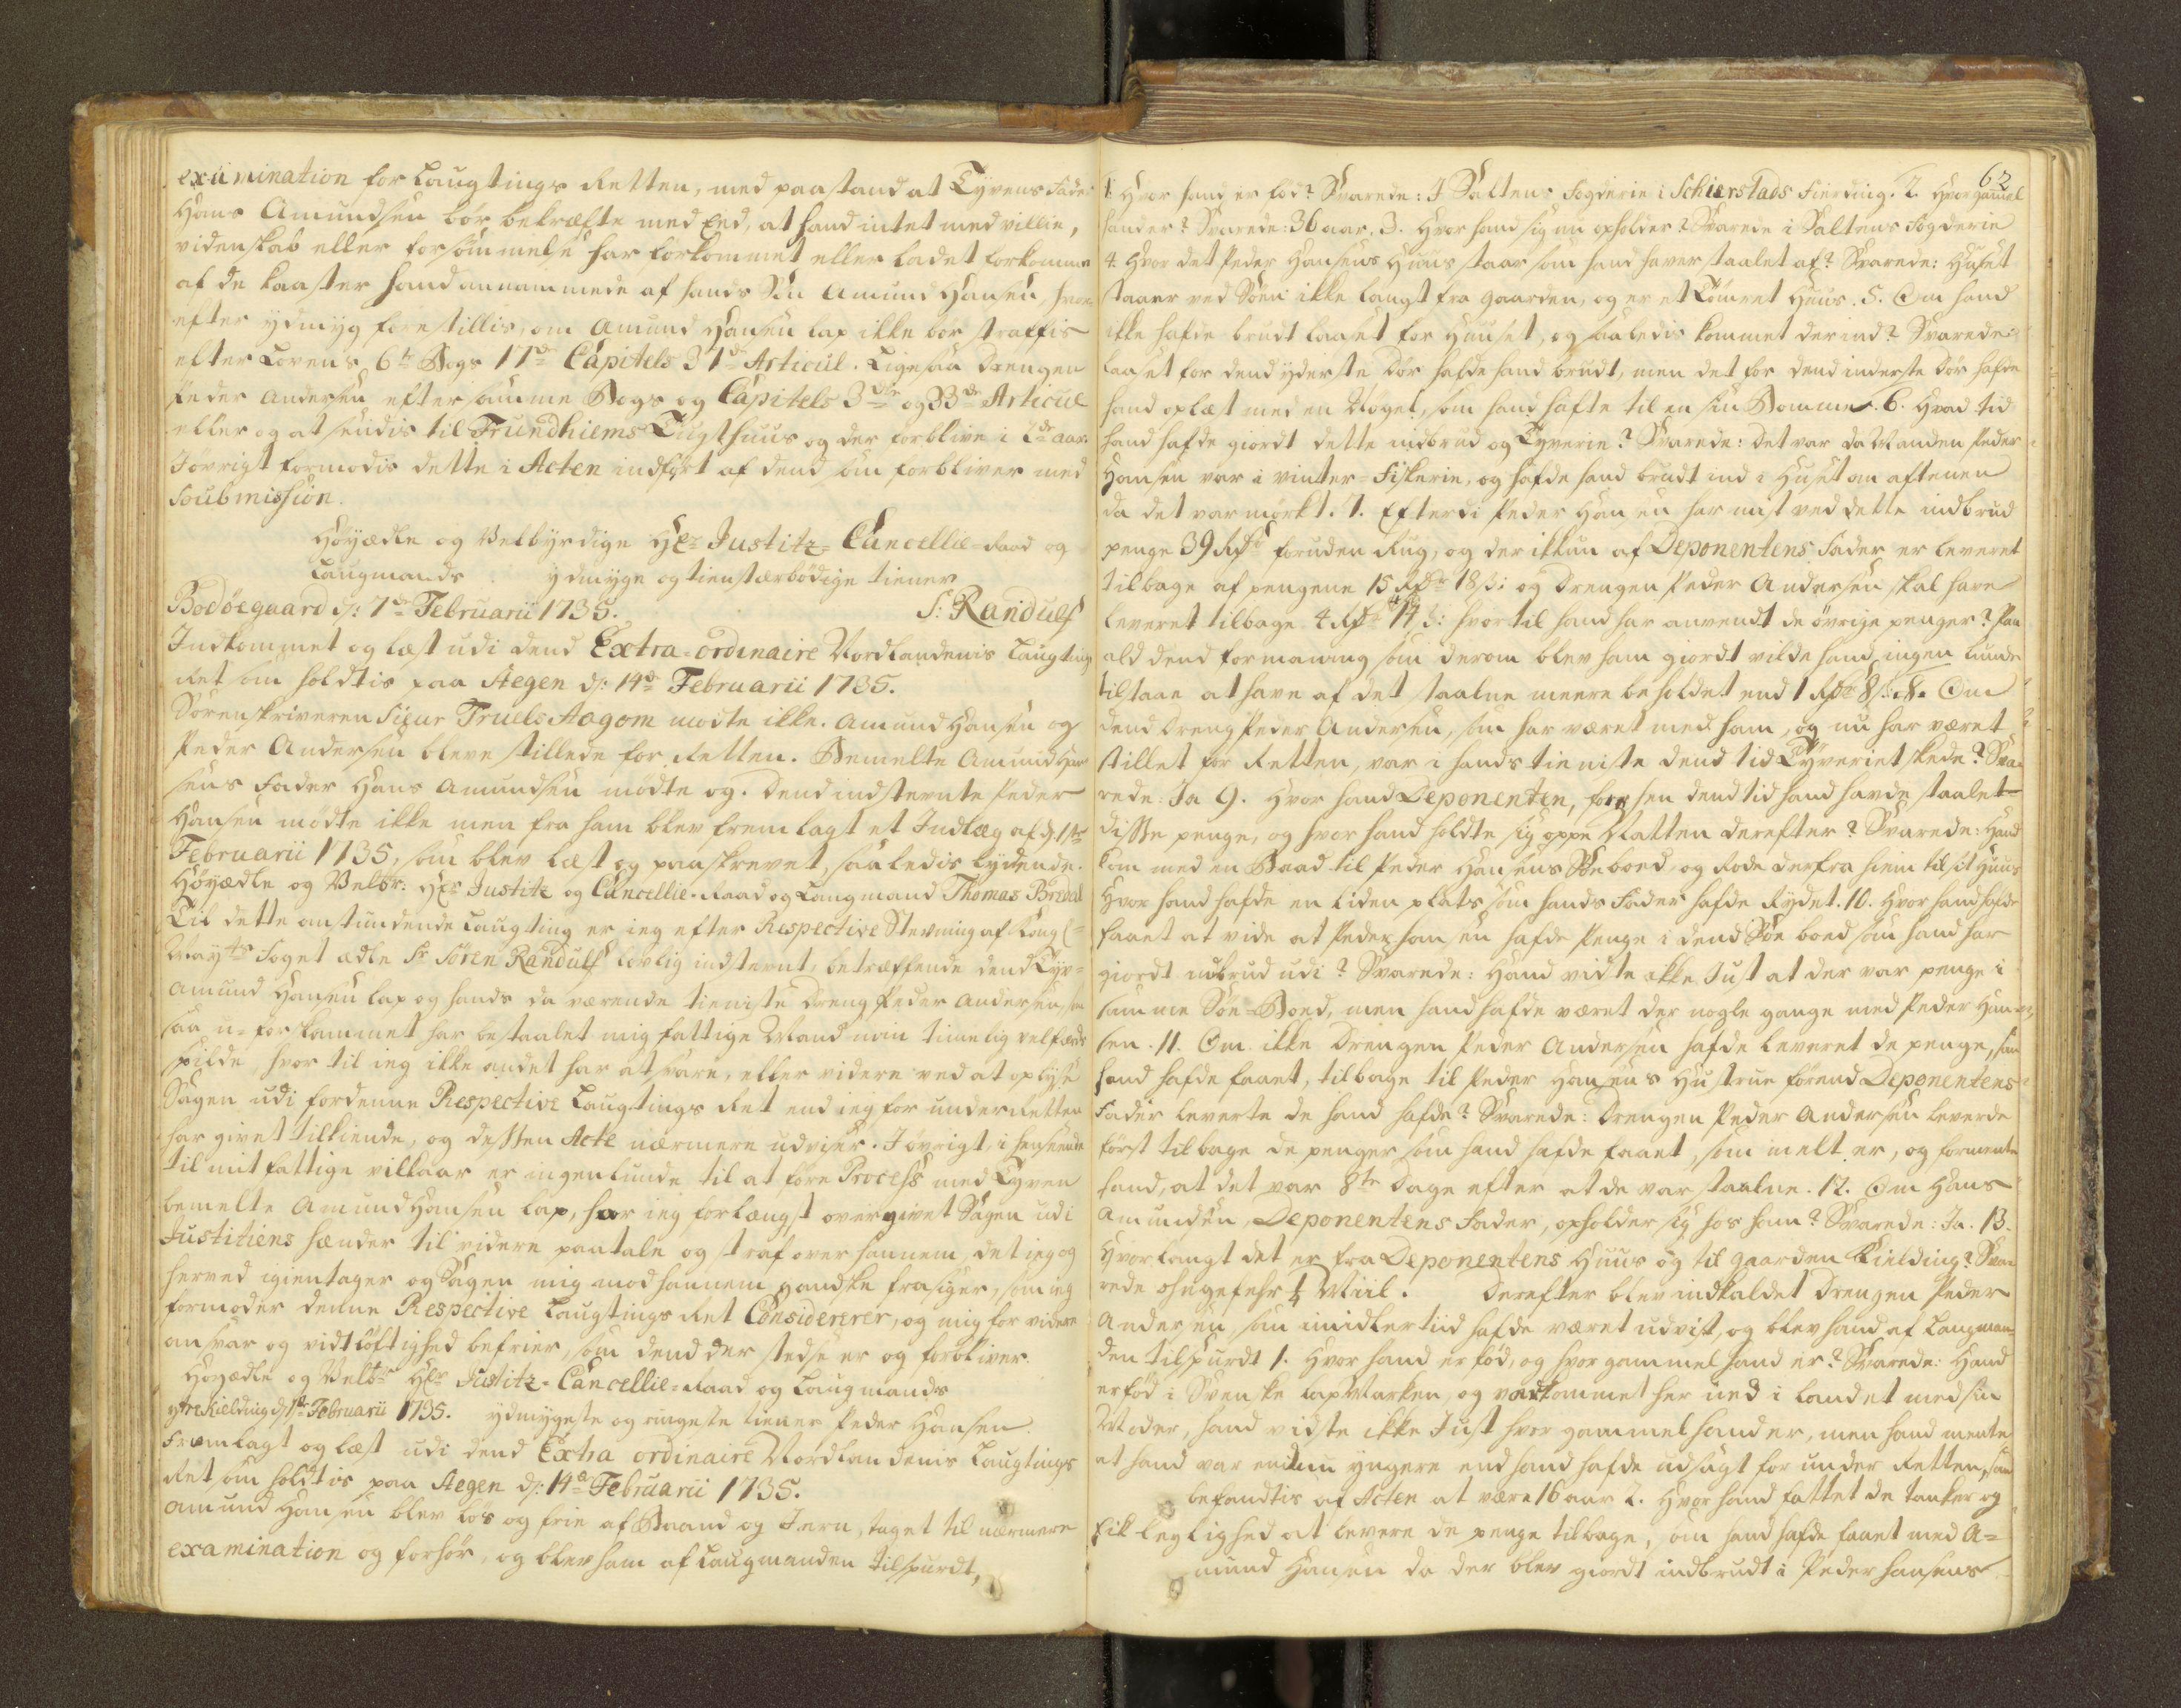 examination for Laugtings Retten, med paastand at Tyvens Fader
Hans Amundsen bør bekræfte med Eed, at hand intet med villie,
videnskab eller forsømmelse har forkommet eller ladet forkomme
af de kaaster hand annammede af hands Søn Amund Hansen, hvor
efter ydmyg forestillis, om Amund Hansen lap ikke bør straffis
efter Lovens 6te Bogs 17de Capitels 37de Articul. Ligesaa Drengen
Peder Andersen efter samme Bogs og Capitels 3die og 33de Articul
eller og at sendis til Trundhiems Tugthuus og der forblive i 2de aar.
I øvrigt formodis dette i Acten indført af dend som forbliver med
Soubmission.
Høyædle og Velbyrdige Hr Justitz- Cancellie-Raad og
Laugmands ydmyge og tienstærbødige tiener
Bodøegaard d: 7de Februarii 1735. S: Randulf
Indkommet og læst udi dend Extra-ordinaire Nordlandenis Laugtings
Ret som holdtis paa Stegen d: 14de Februarii 1735.
Sorenskriveren Sigur Truels Aagom mødte ikke. Amund Hansen og
Peder Andersen bleve stillede for Retten. Bemelte Amund Han
sens Fader Hans Amundsen mødte og. Dend indstevnte Peder
Hansen mødte ikke men fra ham blev fremlagt et Indlæg af d: 1ste
Februarii 1735, som blev læst og paaskrevet, saaledis lydende.
Høyædle og Velbr: Hr Justitz og Cancellie-Raad og Laugmand Thomas Bredal
Til dette anstundende Laugting er ieg efter Respective Stevning af Kongl-
May:ts Foget ædle Sr Søren Randulf lovlig indstevnt, betræffende dend Tyv-
Amund Hansen lap og hands da værende tieniste Dreng Peder Andersen, som
saa u-forskammet har bestaalet mig fattige Mand min timelig velfærd
spilde, hvor til ieg ikke andet har at svare, eller videre ved at oplyse
Sagen udi for denne Respective Laugtings Ret end ieg for underretten
har givet tilkiende, og dessen Acte nærmere udviser. I øvrigt, i henseende
til mit fattige villkaar er ingenlunde til at føre Process med Tyven
bemelte Amund Hansen lap, har ieg forlængst overgivet Sagen udi
Justitiens hænder til videre paatale og straf over hannem, det ieg og
herved igientager og Sagen mig mod hannem gandske frasiger, som ieg
formoder denne Respective Laugtings Ret Considererer, og mig for videre
ansvar og vidtløftighed befrier, som dend der stedse er og forbliver
Høyædle og Velbr Hr Justitz-Cancellie-Raad og Laugmands
ytre Kielding d: 1ste Februarii 1735. ydmygste og ringeste tiener Peder Hansen.
Fremlagt og læst udi dend Extra ordinaire Nordlandenis Laugtings
Ret som holdtis paa Stegen d: 14de Februarii 1735.
Amund Hansen blev løs og frie af Baand og Jern, taget til nærmere
examination og forhør, og blev ham af Laugmanden tilspurdt,
62
1. Hvor hand er fød? Svarede: I Saltens Fogderie i Schierstads Fierding. 2. Hvor gammel
hand er? Svarede: 36 aar. 3. Hvor hand sig nu opholder? Svarede i Saltens Fogderie
4. Hvor det Peder Hansens Huus staar som hand haver staalet af? Svarede: Huset
staaer ved Søen ikke langt fra gaarden, og er et Tømret Huus. 5. Om hand
ikke hafde brudt laaset for Huuset, og saaledis kommet der ind? Svarede:
Laaset for dend yderste Dør hafde hand brudt, men det for dend inderste Dør hafde
hand oplæt med en Nøgel, som hand hafte til en sin Komme. 6. Hvad tid
hand hafde giordt dette indbrud og Tyverie? Svarede: Det var da Manden Peder
Hansen var i vinter-Fiskerie, og hafde hand brudt ind i Huset om aftenen
da det var mørkt. 7. Efterdi Peder Hansen har mist ved dette indbrud
penge 39 Rdr foruden Rug, og der ikkun af Deponentens Fader er leveret
tilbage af pengene 15 Rdr 18 s: og Drengen Peder Andersen skal have
leveret tilbage 4 Rdr 14 s: hvortil hand har anvendt de øvrige penger? Paa
ald dend formaning som derom blev ham giordt vilde hand ingenlunde
tilstaae at have af det staalne meere beholdet end 1 Rdr 8 s. 8. Om
dend Dreng Peder Andersen, som har været med ham, og nu har været
stillet for Retten, var i hands tieniste dend tid Tyveriet skede? Sva-
rede: Ja 9. Hvor hand Deponenten, foer hen dend tid hand havde staalet
disse penge, og hvor hand holdte sig oppe Natten derefter? Svarede: Hand
kom med en Baad til Peder Hansens Søeboed, og Rode derfra hiem til sit Huus
Hvor hand hafde en liden plats som hands Fader hafde Rydet. 10. Hvor hand hafde
faaet at vide at Peder Hansen hafde Penge i dend Søe boed som hand har
giordt indbrud udi? Svarede: Hand vidste ikke Just at der var penge i
samme Søe-Boed, men hand hafde været der nogle gange med Peder Han-
sen. 11. Om ikke Drengen Peder Andersen hafde leveret de penge, som
hand hafde faaet, tilbage til Peder Hansens Hustrue førend Deponentens
Fader leverte de hand hafde? Svarede: Drengen Peder Andersen leverde
først tilbage de penger som hand hafde faaet, som melt er, og formente
hand, at det var 8te Dage efter at de var staalne. 12. Om Hans
Amundsen, Deponentens Fader, opholder sig hos ham? Svarede: Ja. 13.
Hvor langt det er fra Deponentens Huus og til gaarden Kielding? Sva-
rede ohngefehr 1/4 Miil. Derefter blev indkaldet Drengen Peder
Andersen, som imidlertiid hafde været udvist, og blev hand af Laugman-
den tilspurdt 1. Hvor hand er fød, og hvor gammel hand er? Svarede: Hand
er fød i Svenske lapMarken, og var kommet her ned i landet med sin
Moder, hand vidste ikke Just hvor gammel hand er, men hand mente
at hand var endnu yngere end hand hafde udsagt for under Retten, som
befandtis af Acten at være 16 aar 2. Hvor hand fattet de tanker og
fik leylighed at levere de penge tilbage, som hand hafde faaet med A-
mund Hansen da der blev giordt indbrudt i Peder Hansens